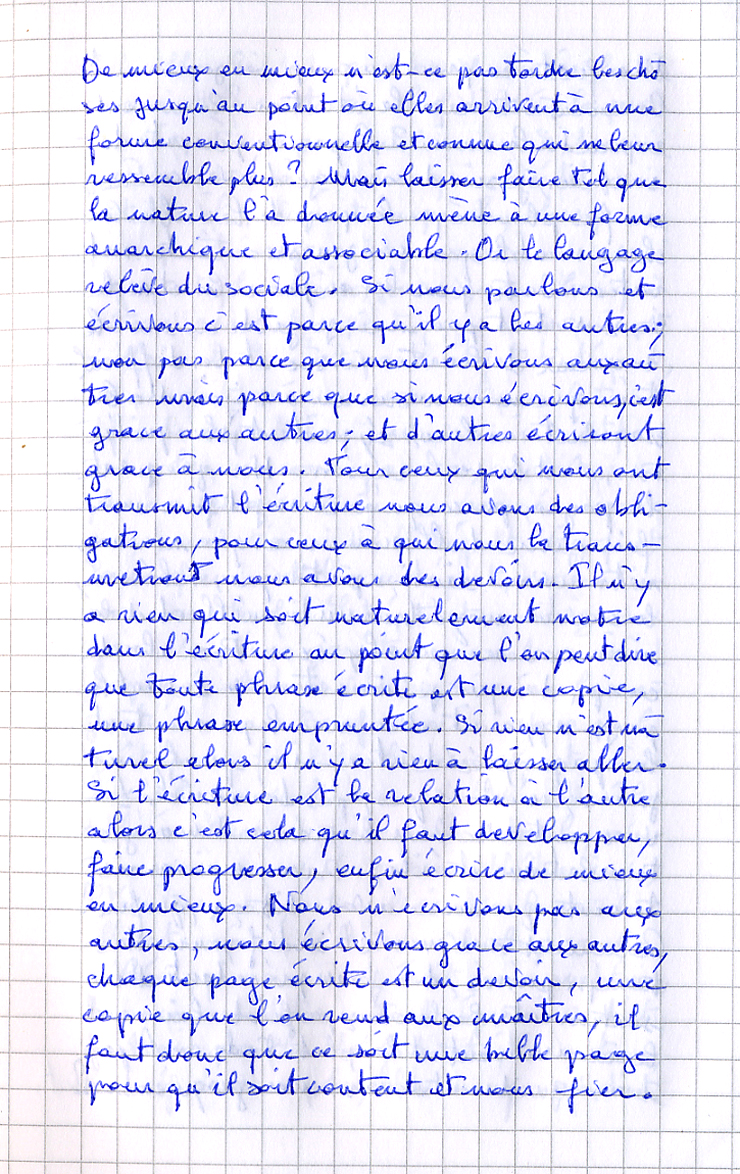 De mieux en mieux n'est-ce pas tordre les cho
ses jusqu'au point où elles arrivent à une
forme conventionnelle et connue qui ne leur
ressemble plus ? Mais laisser faire tel que
la nature l'a donnée mène à une forme
anarchique et associable. Or le langage
relève du sociale. Si nous parlons et
écrivons c'est parce qu'il y a les autres ;
non pas parce que nous écrivons aux au
tres mais parce que si nous écrivons, c'est
grace aux autres ; et d'autres écriront
grace à nous. Pour ceux qui nous ont
transmit l'écriture nous avons des obli-
gations, pour ceux à qui nous la trans-
mettront nous avons des devoirs. Il n'y
a rien qui soit naturelement notre
dans l'écriture au point que l'on peut dire
que toute phrase écrite est une copie,
une phrase empruntée. Si rien n'est na
turel alors il n'y a rien à laisser aller.
Si l'écriture est la relation à l'autre
alors c'est cela qu'il faut developper,
faire progresser, enfin écrire de mieux
en mieux. Nous n'ecrivons pas aux
autres, nous écrivons grace aux autres,
chaque page écrite est un devoir, une
copie que l'on rend aux maîtres, il
faut donc que ce soit une belle page
pour qu'il soit content et nous fier.